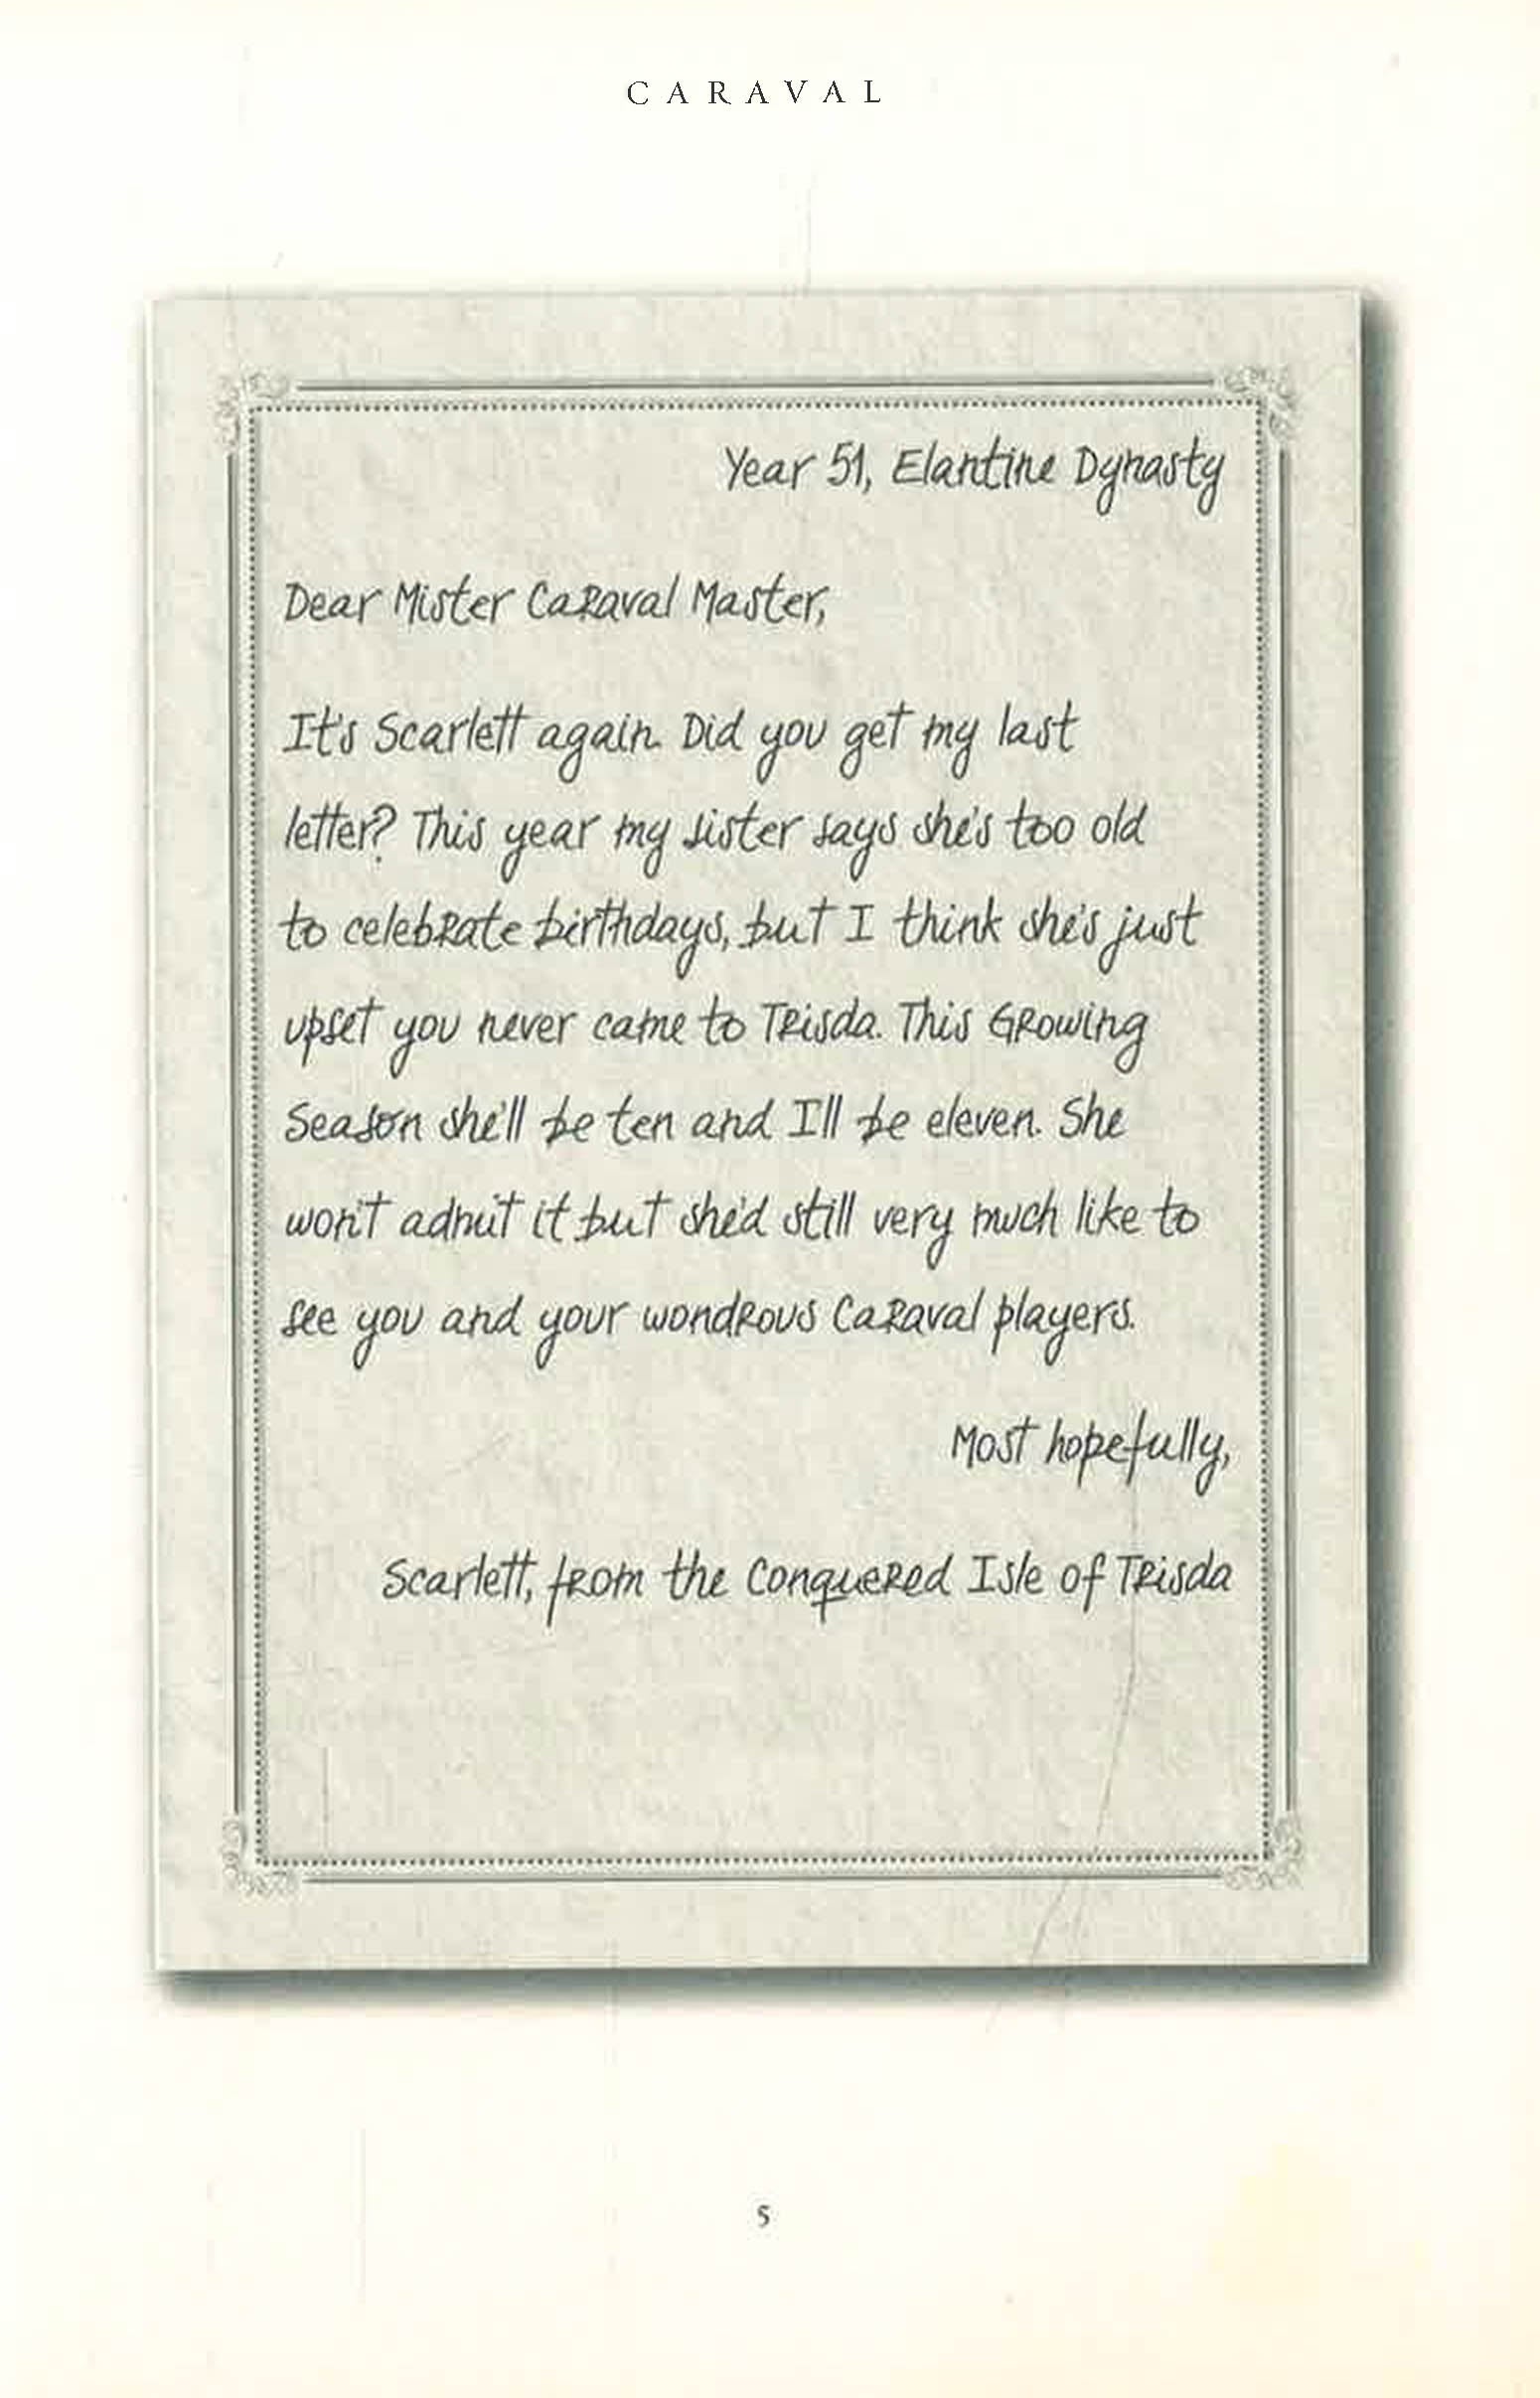 CARAVAL
Year 51, Elantine Dynasty
Dear Mister Caraval Master,
It's Scarlett again. Did you get my last
letter? This year my sister says she's too old
to celebrate birthdays, but I think she's just
upset you never came to Trisda. This Growing
Season she'll be ten and I'll be eleven. She
won't admit it but she'd still very much like to
see you and your wondrous Caraval players.
Most hopefully,
Scarlett, from the Conquered Isle of Trisda
5